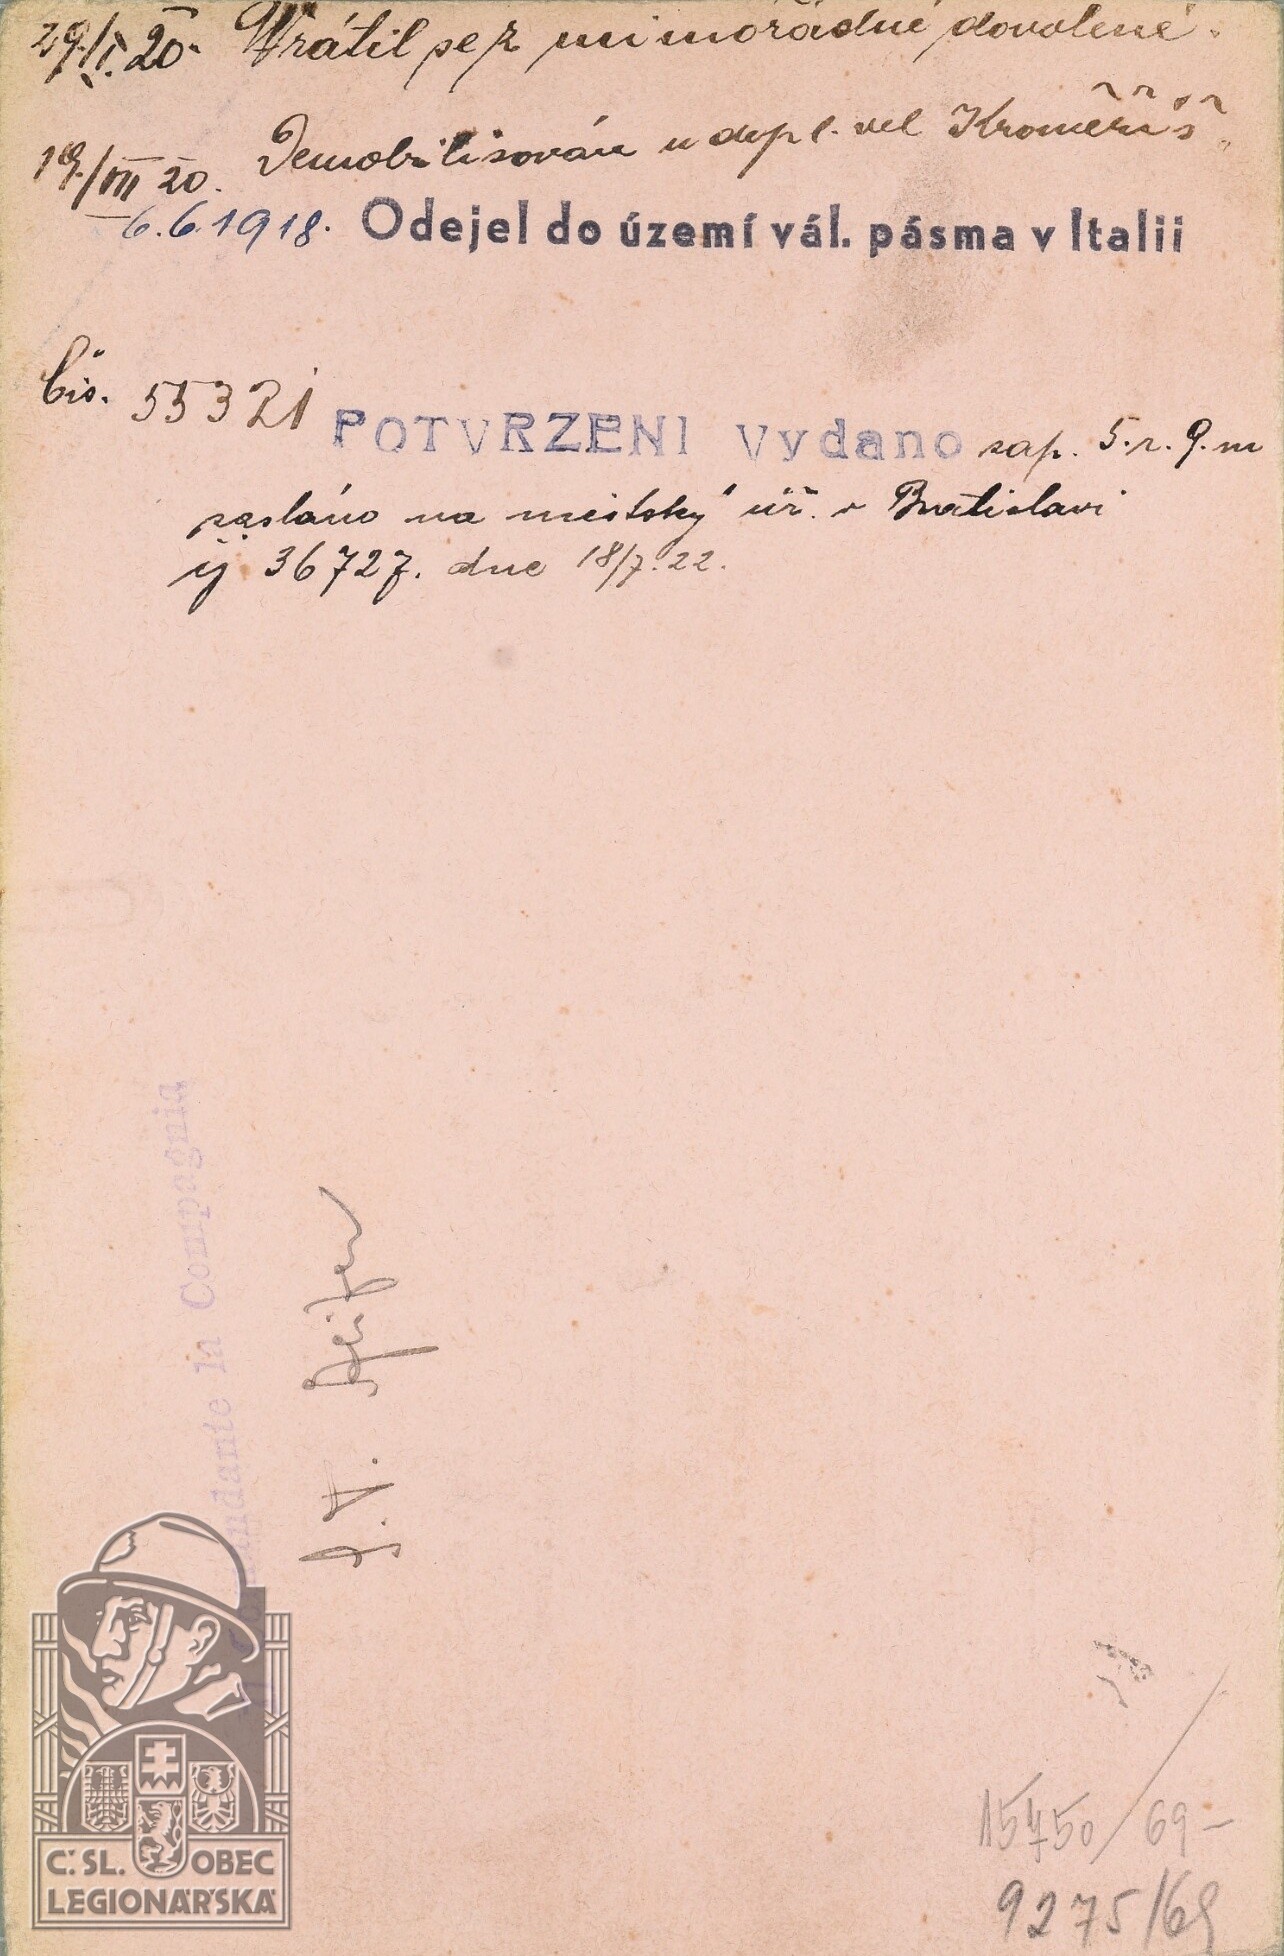 29./I. 20. Vrátil se z mimořádné dovolené.
19./VIII 20. Demobilisován u dopl. vel Kroměříž.
6.6.1918. Odejel do území vál. pásma v Italii
Čís. 55321 POTVRZENI Vydano zap. 5.r. 9.m
zasláno na městský úř. v Bratislavi
čj 36727. dne 18/7.22.
Comandante la Compagnia
15450/69-
9275/69
Č. SL. OBEC
LEGIONÁŘSKÁ